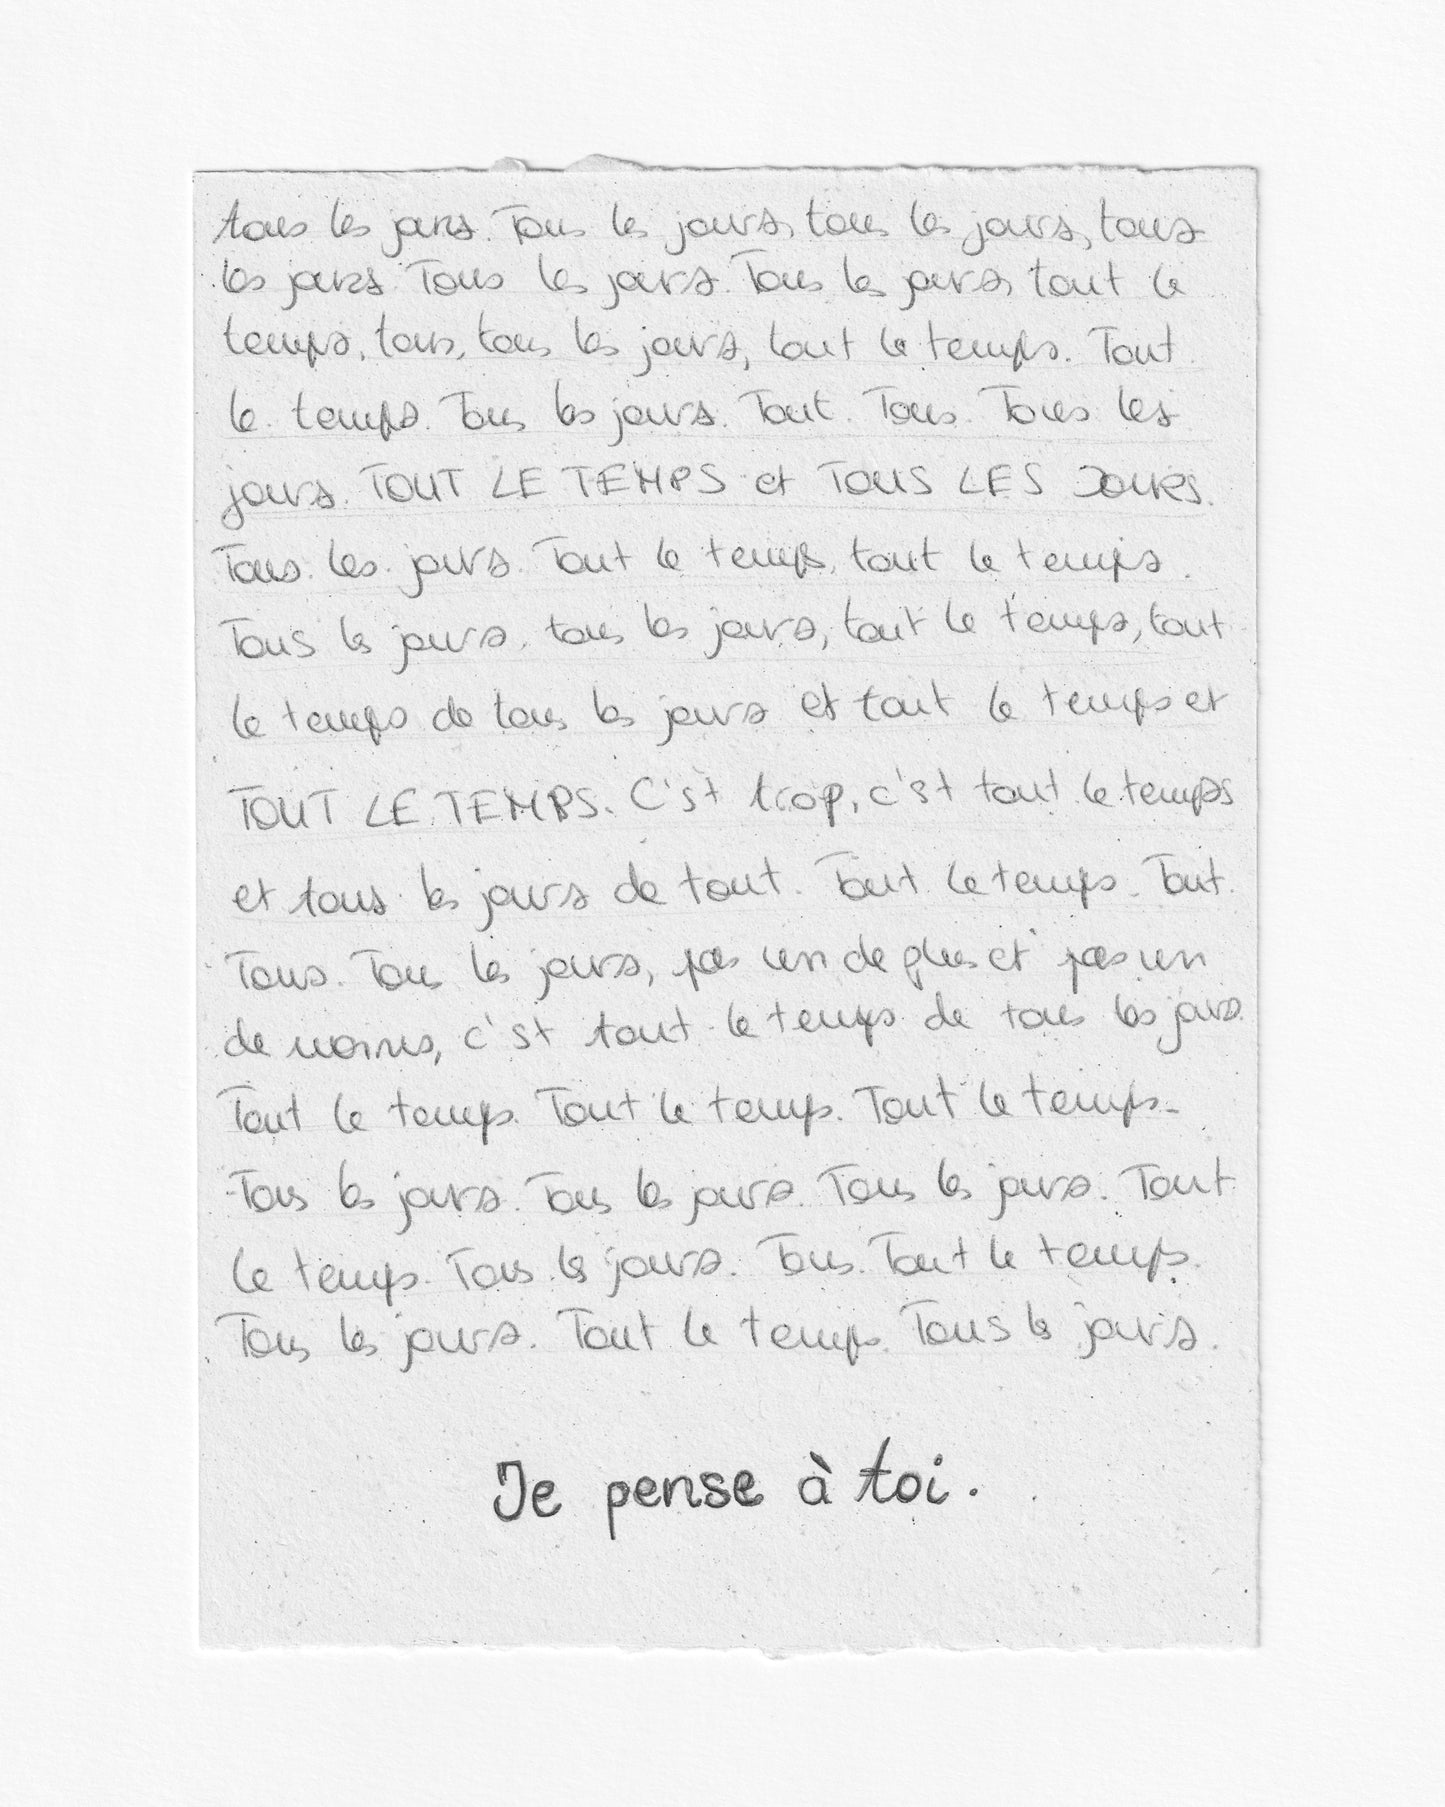 tous les jours. Tous les jours, tous les jours, tous
les jours. Tous les jours. Tous les jours, tout le
temps, tous, tous les jours, tout le temps. Tout
le temps. Tous les jours. Tout. Tous. Tous les
jours. TOUT LE TEMPS et TOUS LES JOURS.
Tous les jours. Tout le temps, tout le temps.
Tous les jours, tous les jours, tout le temps, tout
le temps de tous les jours et tout le temps et
TOUT LE TEMPS. C'st trop, c'st tout le temps
et tous les jours de tout. Tout le temps. Tout.
Tous. Tous les jours, pas un de plus et pas un
de moins, c'st tout le temps de tous les jours.
Tout le temps. Tout le temps. Tout le temps.
Tous les jours. Tous les jours. Tous les jours. Tout
le temps. Tous les jours. Tous. Tout le temps.
Tous les jours. Tout le temps. Tous les jours.
Je pense à toi.